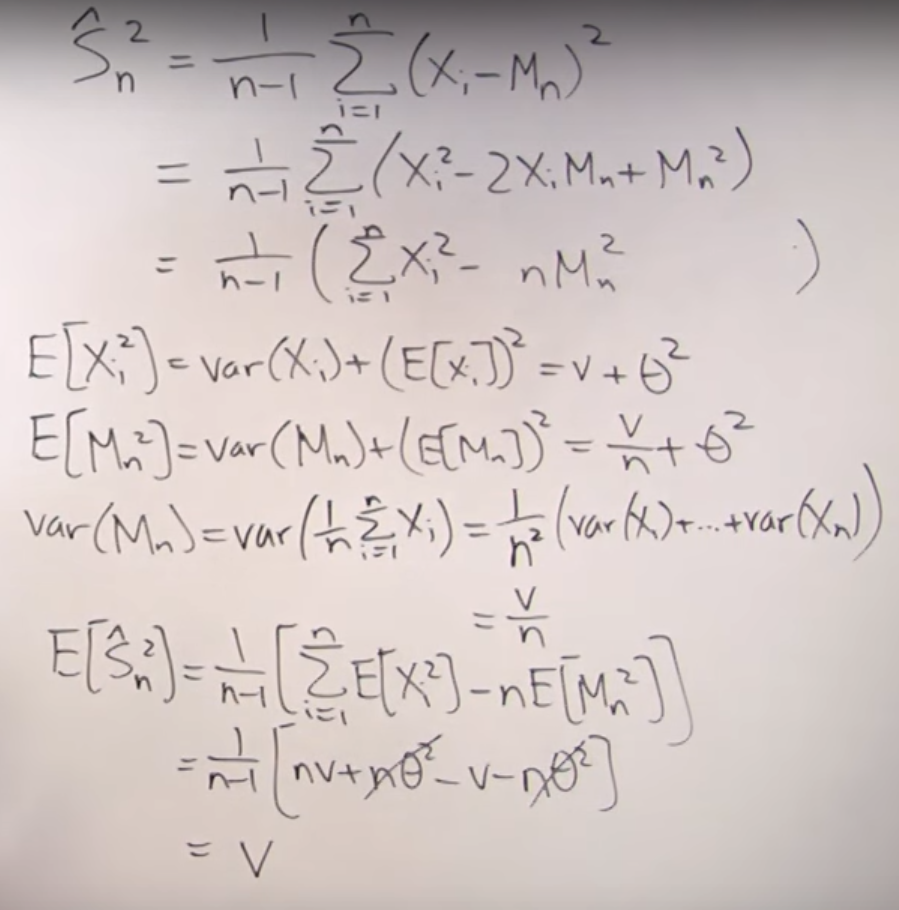 Ŝ_n^2 = \frac{1}{n-1} \sum_{i=1}^{n} (X_i - M_n)^2
= \frac{1}{n-1} \sum_{i=1}^{n} (X_i^2 - 2X_i M_n + M_n^2)
= \frac{1}{n-1} ( \sum_{i=1}^{n} X_i^2 - nM_n^2 )
E[X_i^2] = var(X_i) + (E[X_i])^2 = v + θ^2
E[M_n^2] = var(M_n) + (E[M_n])^2 = \frac{v}{n} + θ^2
var(M_n) = var(\frac{1}{n} \sum_{i=1}^{n} X_i) = \frac{1}{n^2} (var(X_1) + ... + var(X_n))
= \frac{v}{n}
E[Ŝ_n^2] = \frac{1}{n-1} [ \sum_{i=1}^{n} E[X_i^2] - nE[M_n^2] ]
= \frac{1}{n-1} [ nv + nθ^2 - v - nθ^2 ]
= v